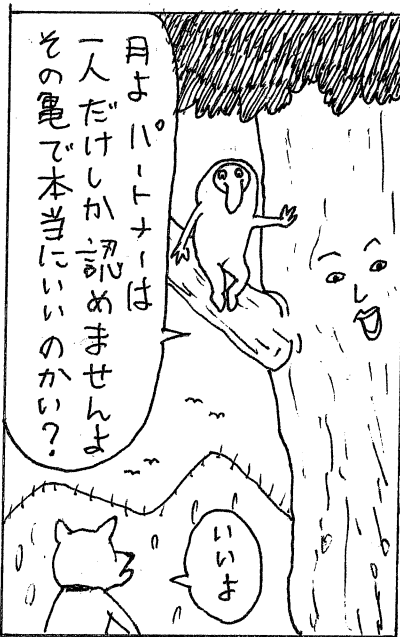 月よ パートナーは
一人だけしか認めませんよ
その亀で本当にいいのかい?
いいよ